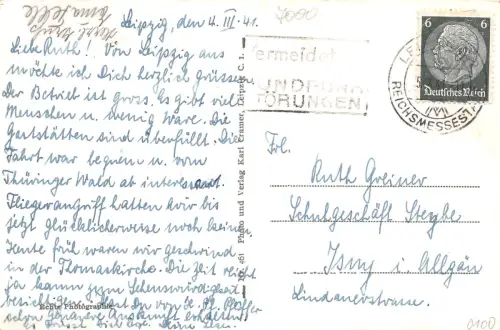 Leipzig, den 4. III. 41.
Liebe Ruth! Von Leipzig aus
möchte ich Dich herzlich grüssen.
Der Betrieb ist gross. Es gibt viel
Menschen u. wenig Ware. Die
Gaststätten sind überfüllt. Die
Fahrt war bequem u. vom
Thüringer Wald ab interessant.
Fliegerangriff hatten wir bis
jetzt Glücklicherweise noch keinen
Heute früh waren wir geschwind
in der Thomaskirche. Die Zeit reicht
ja kaum zum
besichtigen. Hast Du von
genauere Auskunft erhalten?
Herzl. Gruß
7000
Vermeidet
RUNDFUNK
STÖRUNGEN
REICHSMESSESTADT
6 6
Deutsches Reich
Photo und Verlag Karl Cramer, Leipzig C. 1.
Echte Photographie
Frl.
Ruth Greiner
Schuhgeschäft
Isny i. Allgäu
Lindauerstrasse.
0100